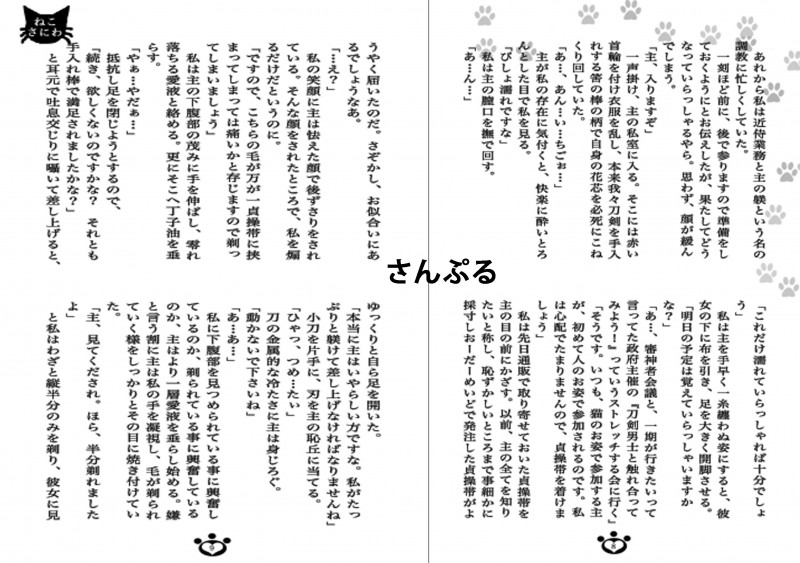 あれから私は近侍業務と主の躾という名の
調教に忙しくしていた。
一刻ほど前に、後で参りますので準備をし
ておくようにとお伝えしたが、果たしてどう
なっていらっしゃるやら。思わず、顔が緩ん
でしまう。
「主、入りますぞ」
一声掛け、主の私室に入る。そこには赤い
首輪を付け衣服を乱し、本来我々刀剣を手入
れする筈の棒の柄で自身の花芯を必死にこね
くり回していた。
「あ…、あん…い…ちごぉ…」
主が私の存在に気付くと、快楽に酔いとろ
んとした目で私を見る。
「びしょ濡れですな」
私は主の膣口を撫で回す。
「あ…ん…」
「これだけ濡れていらっしゃれば十分でしょ
う」
私は主を手早く一糸纏わぬ姿にすると、彼
女の下に布を引き、足を大きく開脚させる。
「明日の予定は覚えていらっしゃいますか
な？」
「あ…、審神者会議と、一期が行きたいって
言ってた政府主催の『刀剣男士と触れ合って
みよう！』っていうストレッチする会に行く」
「そうです。いつも、猫のお姿で参加する主
が、初めて人のお姿で参加されるのです。私
は心配でたまりませんので、貞操帯を着けま
しょう」
私は先日通販で取り寄せておいた貞操帯を
主の目の前にかざす。以前、主の全てを知り
たいと称し、恥ずかしいところまで事細かに
採寸しおーだーめいどで発注した貞操帯がよ
うやく届いたのだ。さぞかし、お似合いにあ
るでしょうなあ。
「…え？」
私の笑顔に主は怯えた顔で後ずさりをされ
ている。そんな顔をされたところで、私を煽
るだけだというのに。
「ですので、こちらの毛が万が一貞操帯に挟
まってしまっては痛いかと存じますので剃っ
てしまいましょう」
私は主の下腹部の茂みに手を伸ばし、零れ
落ちる愛液と絡める。更にそこへ丁子油を垂
らす。
「やぁ…やだぁ…」
抵抗し足を閉じようとするので、
「続き、欲しくないのですかな？　それとも
手入れ棒で満足されましたかな？」
と耳元で吐息交じりに囁いて差し上げると、
ゆっくりと自ら足を開いた。
「本当に主はいやらしい方ですな。私がたっ
ぷりと躾けて差し上げなければなりませんね」
小刀を片手に、刃を主の恥丘に当てる。
「ひゃっ、つめ…たい」
刀の金属的な冷たさに主は身じろぐ。
「動かないで下さいね」
「あ…あ…」
私に下腹部を見つめられている事に興奮し
ているのか、剃られている事に興奮している
のか、主はより一層愛液を垂らし始める。嫌
と言う割に主は私の手を凝視し、毛が剃られ
ていく様をしっかりとその目に焼き付けてい
た。
「主、見てくだされ。ほら、半分剃れました
よ」
と私はわざと縦半分のみを剃り、彼女に見
ねこ
さにわ
さんぷる
8
9